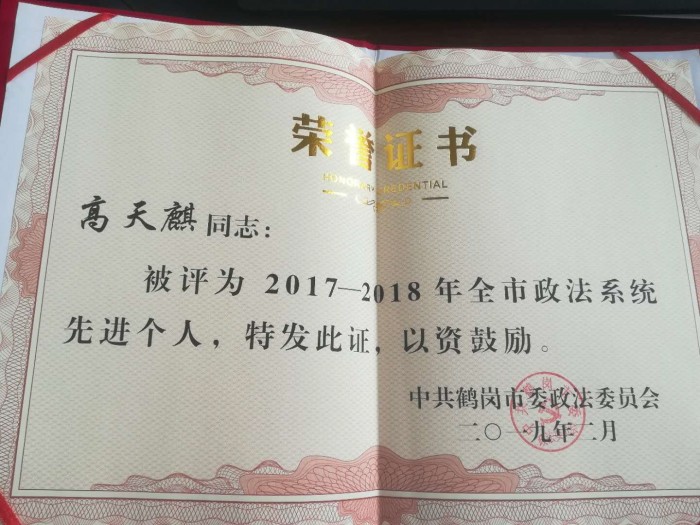 荣誉证书
HONORARY CREDENTIAL
高天麒同志：
被评为 2017—2018 年全市政法系统
先进个人，特发此证，以资鼓励。
中共鹤岗市委政法委员会
二〇一九年二月